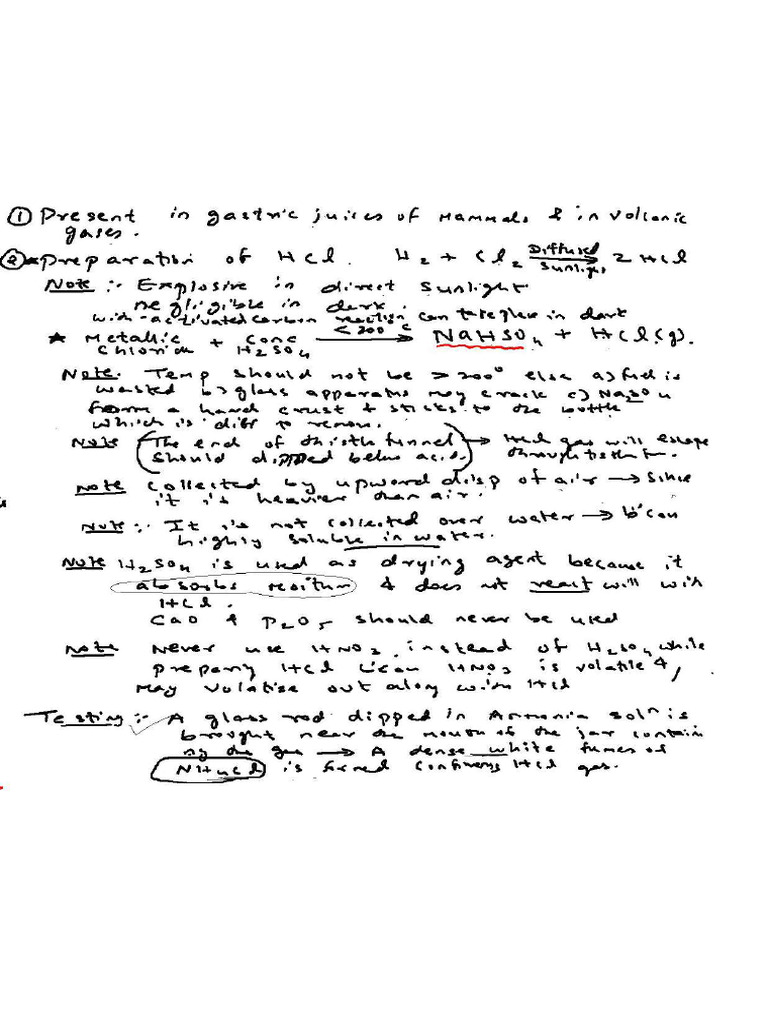 ① Present in gastric juices of Mammals & in Volcanic
gases.
② * preparation of HCl. H₂ + Cl₂ Diffused Sunlight → 2 HCl
Note :- Explosive in direct Sunlight
negligible in dark.
with activated carbon reaction can take place in dark
* Metallic Chloride + Conc H₂SO₄ <200°C → NaHSO₄ + HCl(g).
Note. Temp should not be > 200° else a) fuel is
wasted b) glass apparatus may crack c) Na₂SO₄
form a hard crust + sticks to the bottle
which is diff to remove.
Note (The end of thistle funnel → HCl gas will escape
should dipped below acid.) through
Note Collected by upward disp of air → Since
it is heavier than air.
Note :- It is not collected over water →
highly soluble in water.
Note H₂SO₄ is used as drying agent because it
absorbs & does not react will with
HCl.
CaO & P₂O₅ should never be used
Note Never use HNO₃ instead of H₂SO₄ while
HCl HNO₃ is volatile &
May out along with HCl
Testing :- A glass rod dipped in Ammonia solⁿ is
brought near the mouth of the jar contain
ing the gas → A dense white fumes of
NH₄Cl is formed HCl gas.